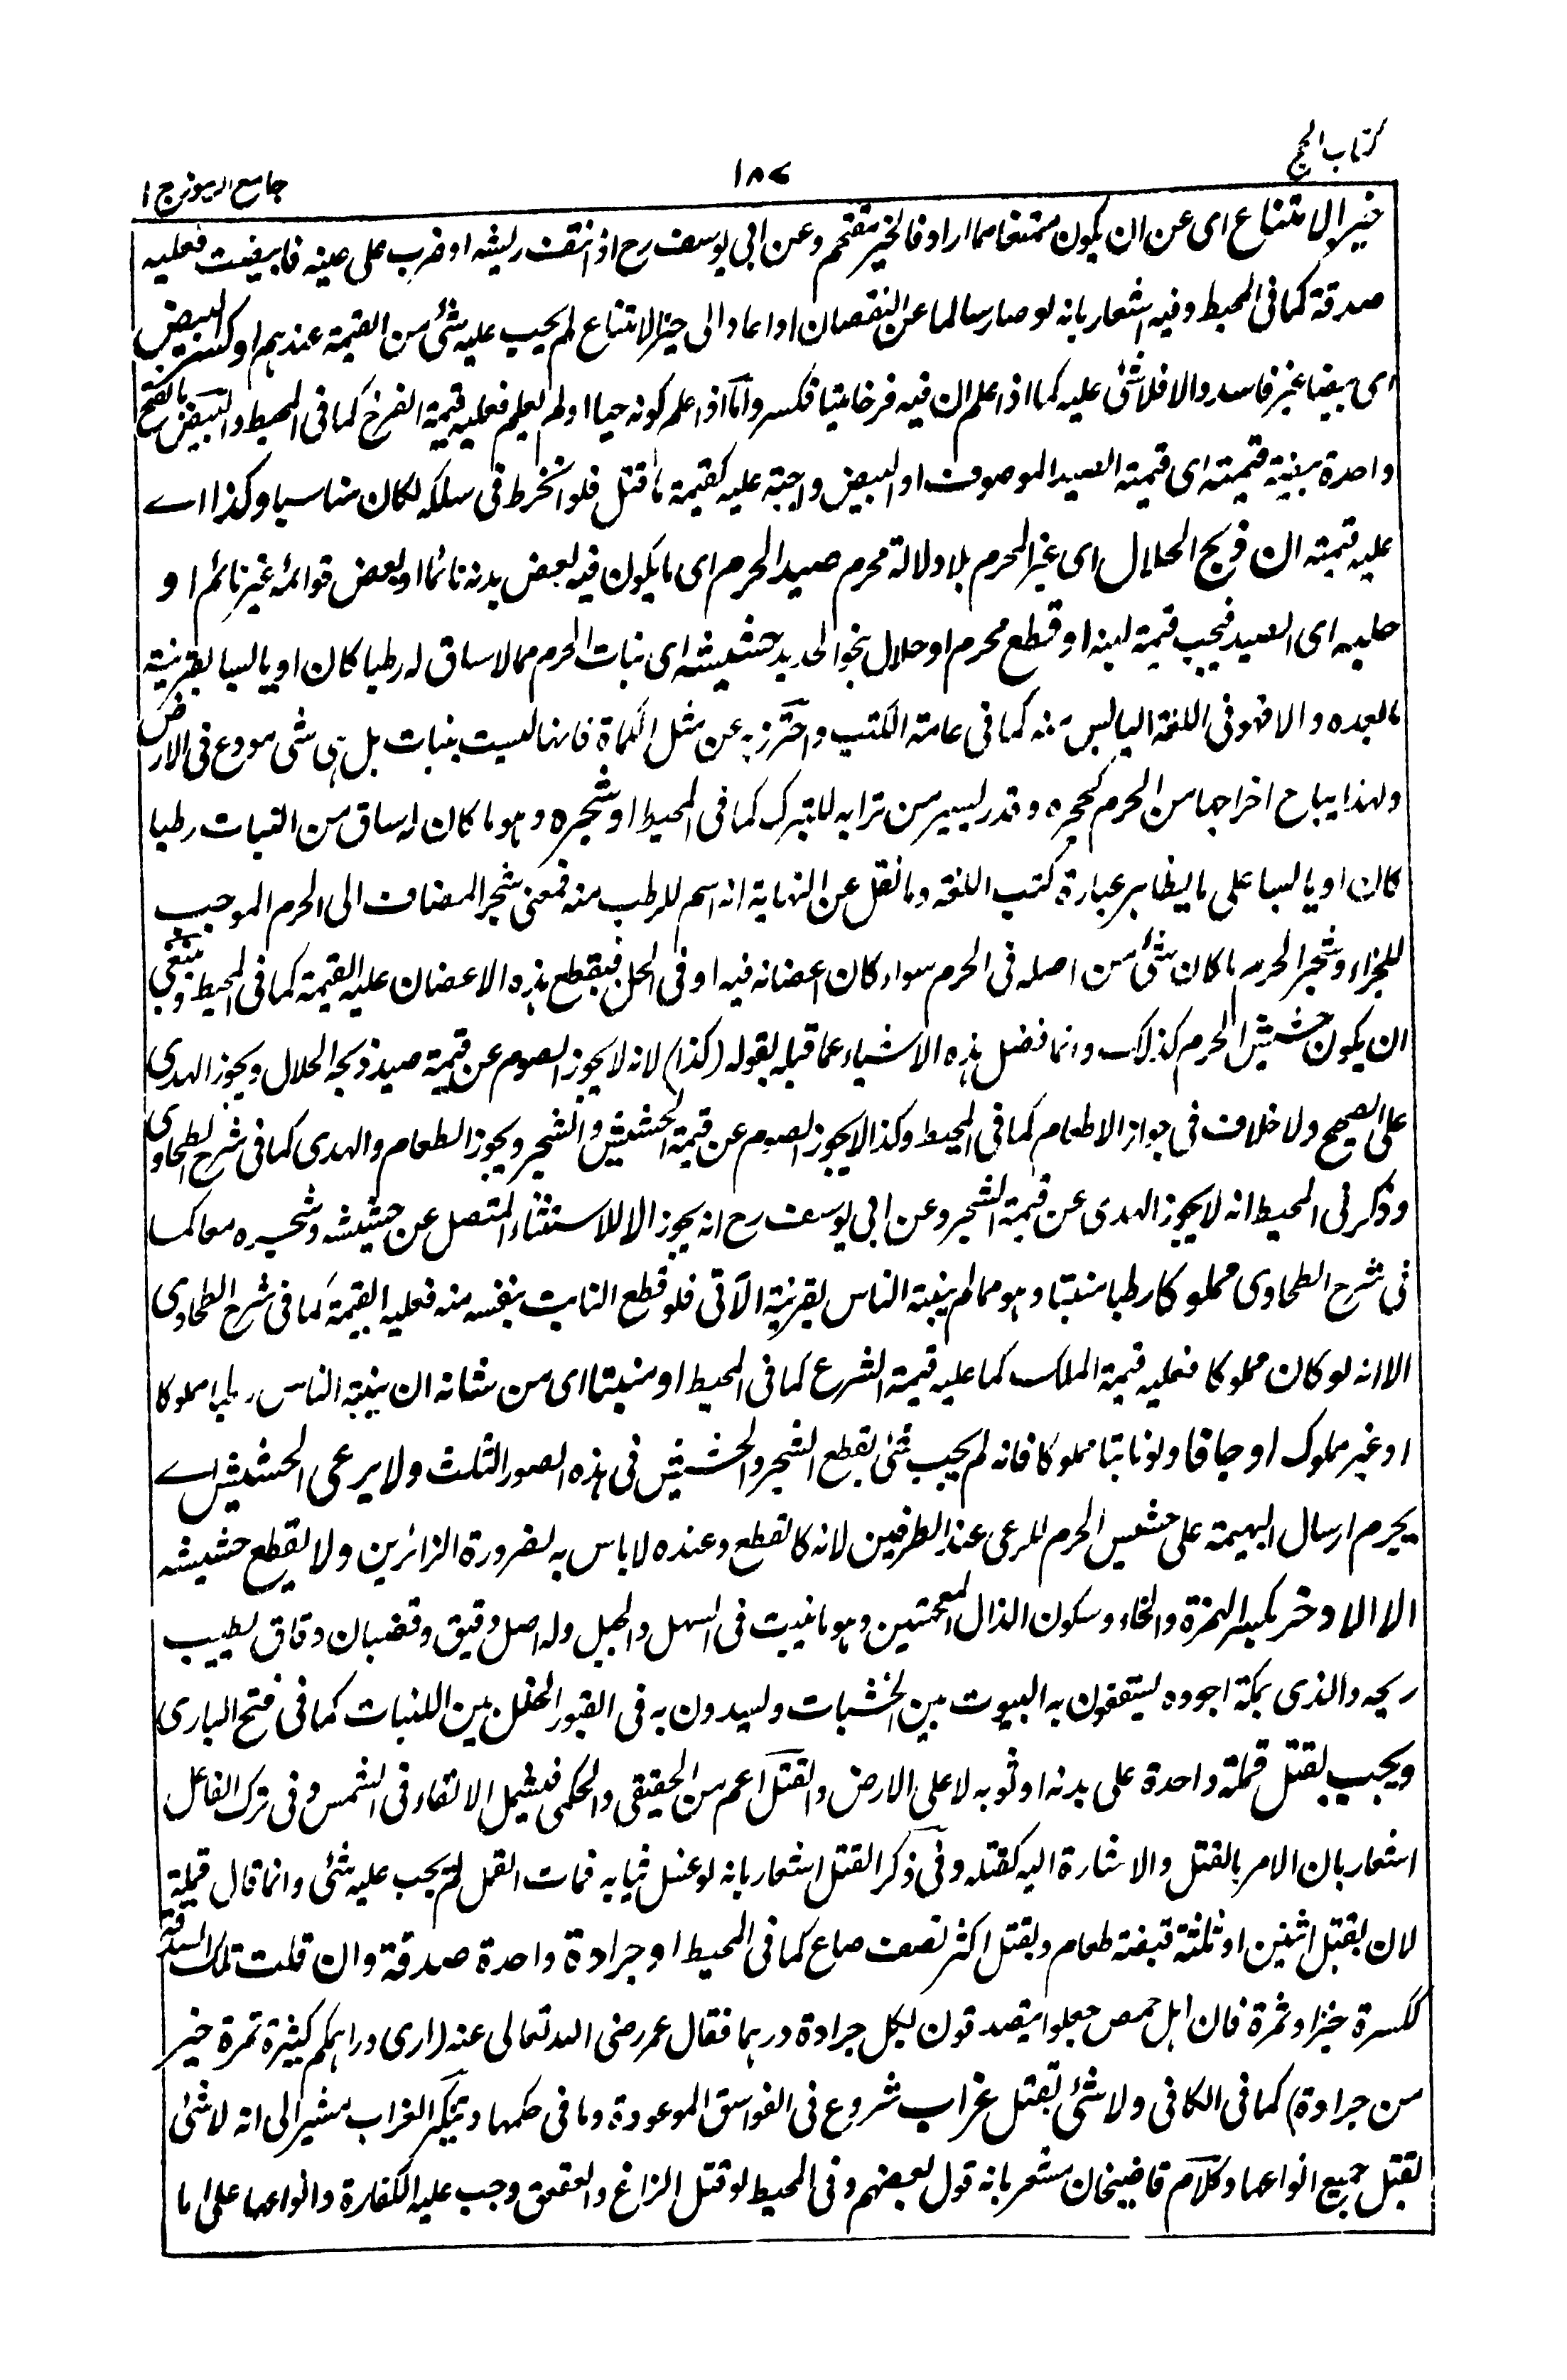 كتاب الحج
١٨٧
جامع الرموز ج ١
حيز الامتناع اى عن ان يكون ممتنعا مما اراد فالحيز مقتحم وعن ابى يوسف رح اذا نتفت ريشه او ضرب على عينه فابيضت فعليه
صدقة كما فى المحيط وفيه اشعار بانه لو صار سالما عن النقصان او اعاد الى حيز الامتناع لم يجب عليه شئ من القيمة عندهم او كسر البيض
اى بيضا غير فاسد والا فلا شئ عليه كما اذا علم ان فيه فرخا ميتا فكسر واما اذا علم كونه حيا او لم يعلم فعليه قيمة الفرخ كما فى المحيط والبيض بالفتح جمع
واحدة بيضة قيمته اى قيمة الصيد الموصوف او البيض واجبة عليه كقيمة ما قتل فلو انخرط فى سلكه لكان مناسبا وكذا اے
عليه قيمته ان ذبح الحلال اى غير المحرم بلا دلالة محرم صيد الحرم اى ما يكون فيه بعض بدنه نائما او بعض قوائمه غير نائم او
حلبه اى الصيد فيجب قيمة لبنه او قطع محرم او حلال بنحو الحديد حشيشه اى نبات الحرم مما لا ساق له رطبا كان او يابسا بقرينة
ما بعده والا فهو فى اللغة اليابس منه كما فى عامة الكتب واحترز به عن مثل الكماة فانها ليست بنبات بل هى شئ مودع فى الارض
ولهذا يباح اخراجها من الحرم كحجره وقدر يسير من ترابه للتبرك كما فى المحيط او شجره وهو ما كان له ساق من النبات رطبا
كان او يابسا على ما يظاهر عبارة كتب اللغة وما نقل عن النهاية انه اسم للرطب منه فمعنى شجر المضاف الى الحرم الموجب
للجزاء وشجر الحرم ما كان شئ من اصله فى الحرم سواء كان اغصانه فيه او فى الحل فبقطع هذه الاغصان عليه القيمة كما فى المحيط وينبغى
ان يكون حشيش الحرم كذلك وانما فصل هذه الاشياء عما قبله بقوله (كذا) لانه لا يجوز الصوم عن قيمة صيد ذبحه الحلال ويجوز الهدى
على الصحيح ولا خلاف فى جواز الاطعام كما فى المحيط وكذا لا يجوز الصوم عن قيمة الحشيش والشجر ويجوز الطعام والهدى كما فى شرح الطحاوى
وذكر فى المحيط انه لا يجوز الهدى عن قيمة الشجر وعن ابى يوسف رح انه يجوز الا للاستثناء المتصل عن حشيشه وشجره معا كما
فى شرح الطحاوى مملوكا رطبا منبتا وهو مما لم ينبته الناس بقرينة الآتى فلو قطع النابت بنفسه منه فعليه القيمة كما فى شرح الطحاوى
الا انه لو كان مملوكا فعليه قيمة الملك كما عليه قيمة الشرع كما فى المحيط او منبتا اى من شانه ان ينبته الناس رطبا مملوكا
او غير مملوك او جافا ولو نابتا مملوكا فانه لم يجب شئ بقطع الشجر والحشيش فى هذه الصور الثلث ولا يرعى الحشيش اے
يحرم ارسال البهيمة على حشيش الحرم للرعى عند الطرفين لانه كالقطع وعنده لا باس به لضرورة الزائرين ولا يقطع حشيشه
الا الاذخر بكسر الهمزة والخاء وسكون الذال المعجمتين وهو ما ينبت فى السهل والجبل وله اصل دقيق وقضبان دقاق يطيب
ريحه والذى بمكة اجوده يسقفون به البيوت بين الخشبات ويسدون به فى القبور الخلل بين اللبنات كما فى فتح البارى
ويجب بقتل قملة واحدة على بدنه او ثوبه لا على الارض والقتل اعم من الحقيقى والحكمى فيشمل الالقاء فى الشمس وفى ترك الفاعل
اشعار بان الامر بالقتل والاشارة اليه كقتله وفى ذكر القتل اشعار بانه لو غسل ثيابه فمات القمل لم يجب عليه شئ وانما قال قملة
لان بقتل اثنين او ثلثة قبضة طعام وبقتل اكثر نصف صاع كما فى المحيط او جرادة واحدة صدقة وان قلت تلك الصدقة
ككسرة خبز او تمرة فان اهل حمص جعلوا يتصدقون لكل جرادة درهما فقال عمر رضى الله تعالى عنه (ارى دراهمكم كثيرة تمرة خير
من جرادة) كما فى الكافى ولا شئ بقتل غراب شروع فى الفواسق الموعودة وما فى حكمها وتنكير الغراب مشير الى انه لا شئ
بقتل جميع انواعها وكلام قاضيخان مشعر بانه قول بعضهم وفى المحيط لو قتل الزاغ والعقعق وجب عليه الكفارة وانواعها على ما